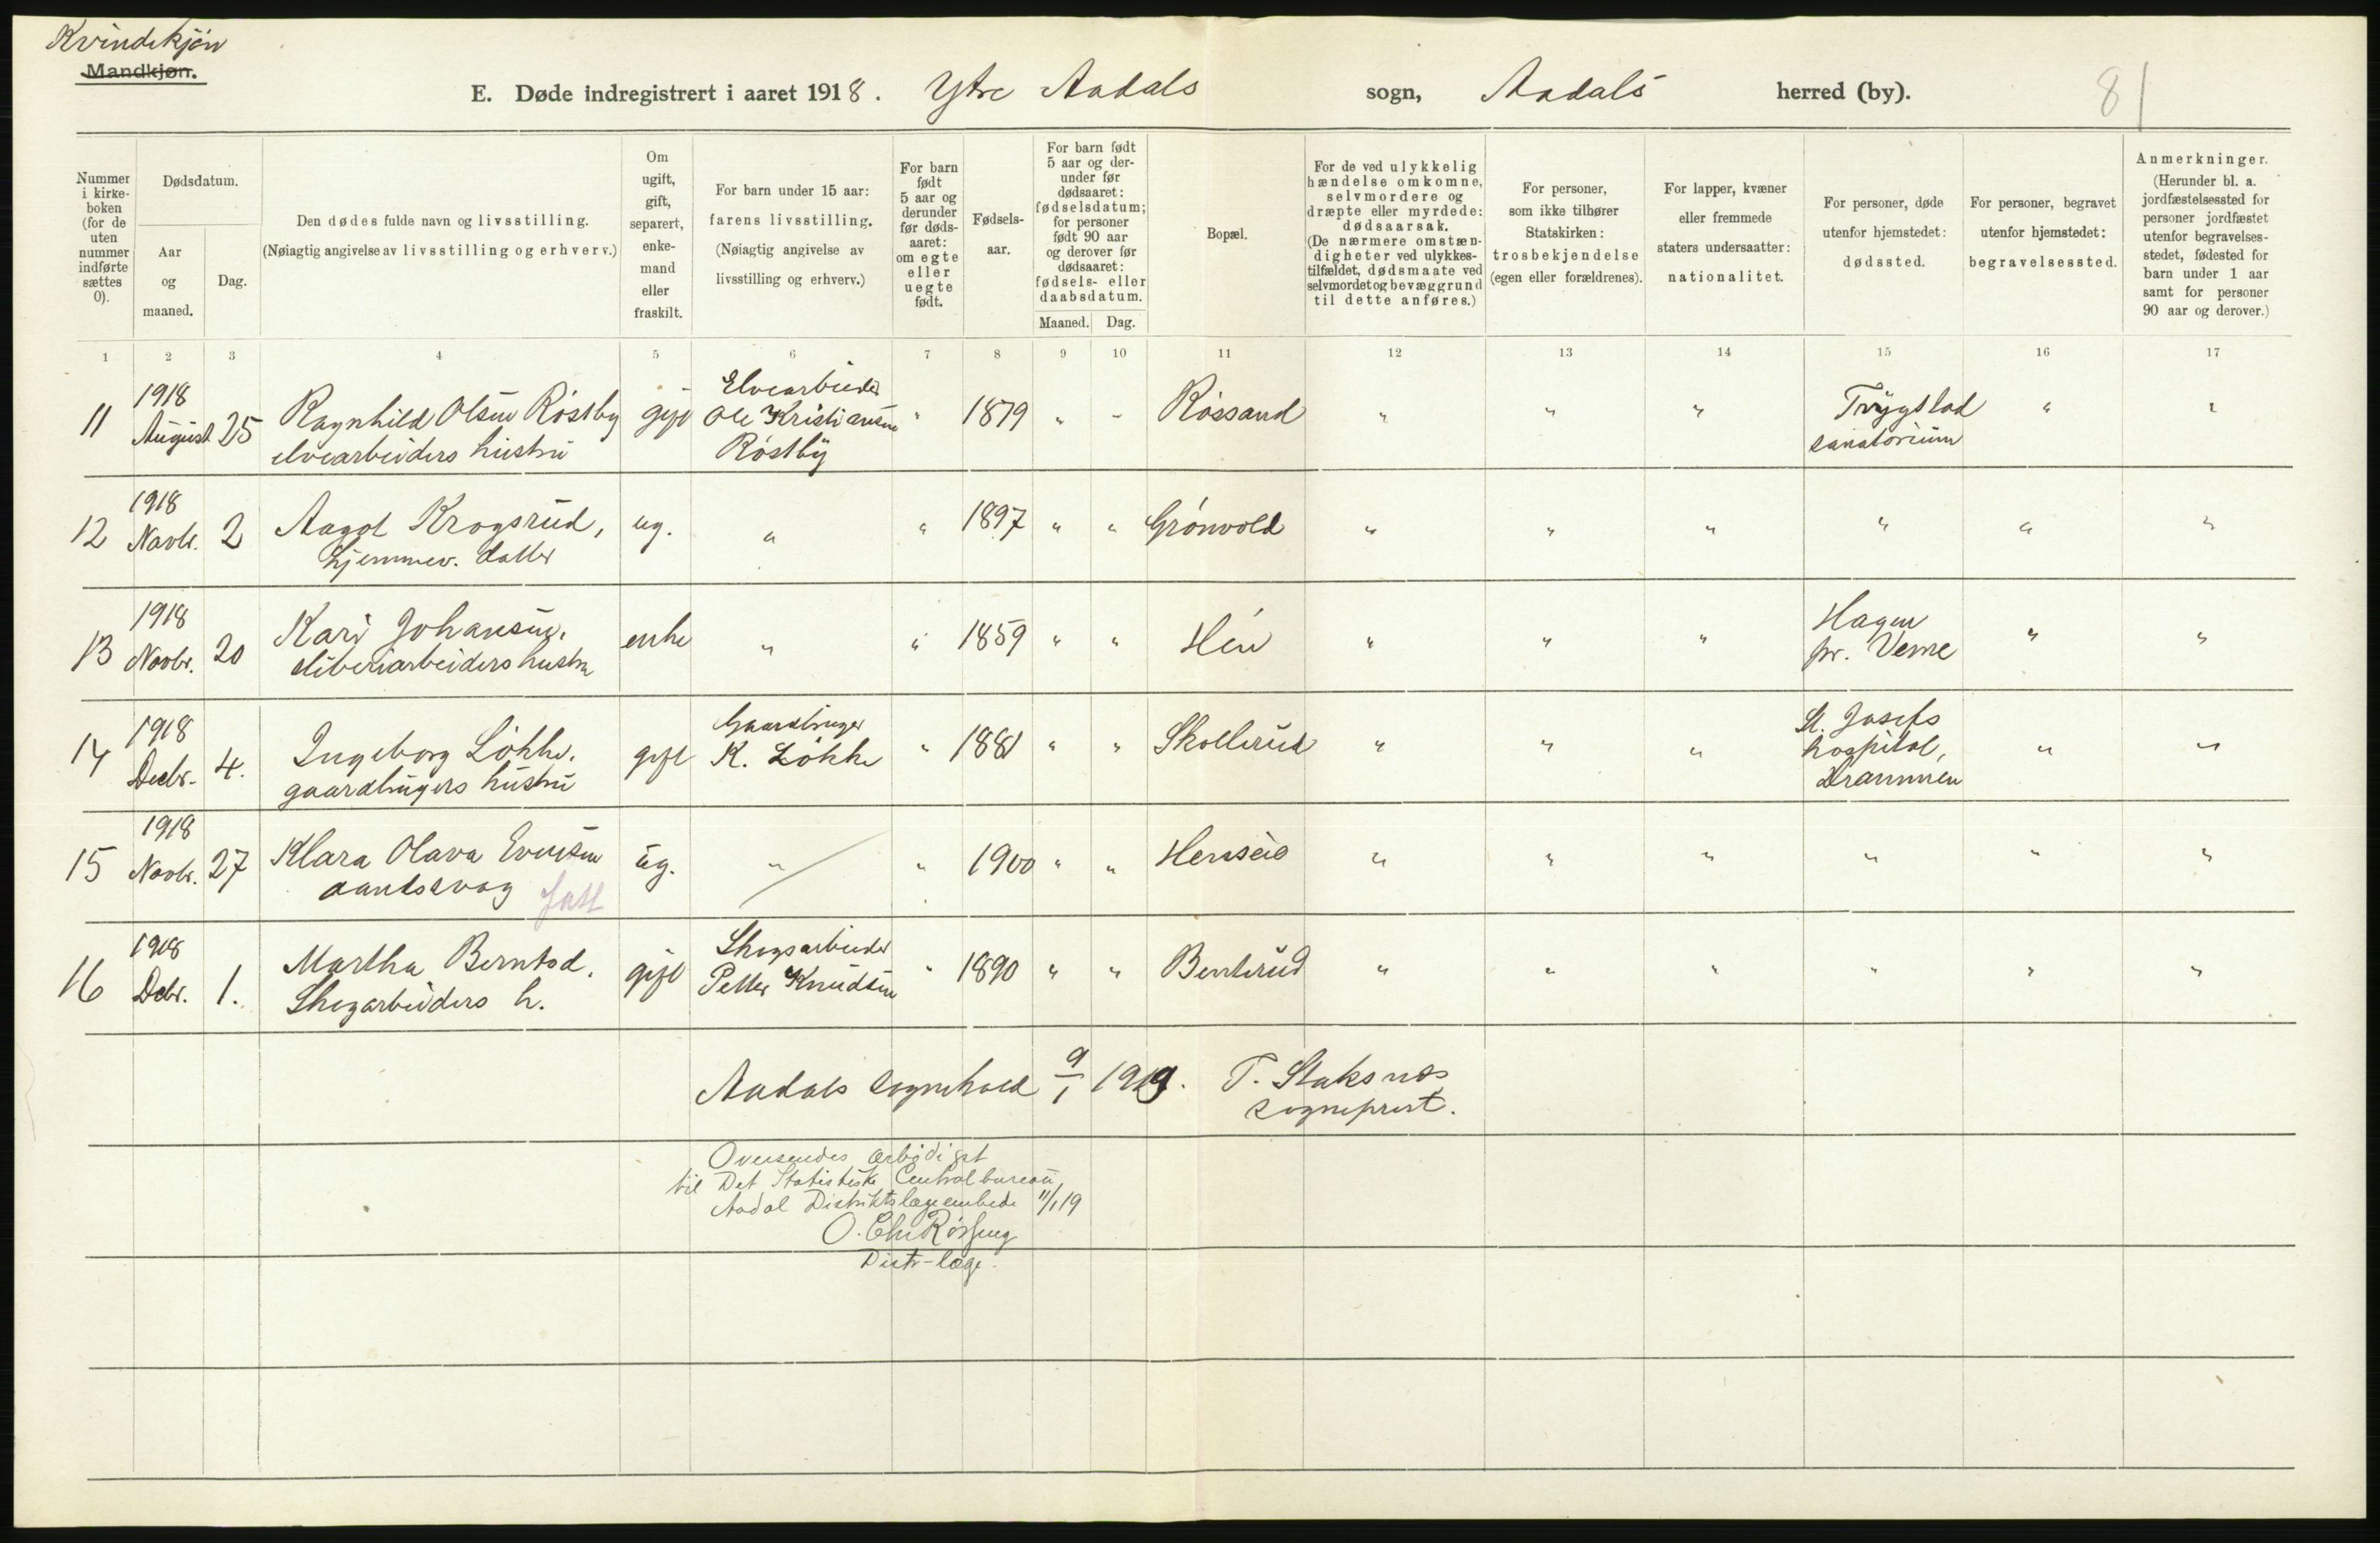 Kvindekjøn
Mandkjøn.
E. Døde indregistrert i aaret 1918. Ytre Aadals sogn, Aadals herred (by). 81
Nummer i kirke- boken (for de uten nummer indførte sættes 0).
Dødsdatum.
Aar og maaned.
Dag.
Den dødes fulde navn og livsstilling.
(Nøiagtig angivelse av livsstilling og erhverv.)
Om ugift, gift, separert, enke- mand eller fraskilt.
For barn under 15 aar:
farens livsstilling.
(Nøiagtig angivelse av livsstilling og erhverv.)
For barn født 5 aar og derunder før døds- aaret: om egte eller uegte født.
Fødsels- aar.
For barn født 5 aar og der- under før dødsaaret: fødselsdatum; for personer født 90 aar og derover før dødsaaret: fødsels- eller daabsdatum.
Maaned. Dag.
Bopæl.
For de ved ulykkelig hændelse omkomne, selvmordere og dræpte eller myrdede: dødsaarsak.
(De nærmere omstæn- digheter ved ulykkes- tilfældet, dødsmaate ved selvmordet og bevæggrund til dette anføres.)
For personer, som ikke tilhører Statskirken: trosbekjendelse (egen eller forældrenes).
For lapper, kvæner eller fremmede staters undersaatter: nationalitet.
For personer, døde utenfor hjemstedet: dødssted.
For personer, begravet utenfor hjemstedet: begravelsessted.
Anmerkninger.
(Herunder bl. a. jordfæstelsessted for personer jordfæstet utenfor begravelses- stedet, fødested for barn under 1 aar samt for personer 90 aar og derover.)
1 2 3 4 5 6 7 8 9 10 11 12 13 14 15 16 17
11 1918 August 25 Ragnhild Olsen Röstby elvearbeiders hustru gift Elvearbeider Ole Kristiansen Röstby " 1879 " " Róssand " " " Trygstad sanatorium " "
12 1918 Novbr. 2 Aagot Krogsrud, hjemmev. datter ug. " " 1897 " " Grönvold " " " " " "
13 1918 Novbr. 20 Kari Johansen, sliberiarbeiders hustru enke " " 1859 " " Hén " " " Hagen pr. Veme " "
14 1918 Decbr. 4. Ingeborg Lökke, gaardbrugers hustru gift Gaardbruger K. Lökke " 1881 " " Skollerud " " " St. Josefs hospital, Drammen " "
15 1918 Novbr. 27 Klara Olava Evensen aandssvag ug. " " 1900 " " Henseie " " " " " "
16 1918 Debr. 1. Martha Berntsd. Skogarbeiders h. gift Skogsarbeider Petter Knudsen " 1890 " " Benterud " " " " " "
Aadals sognekald 9/1 1919. T. Staksnæs
sogneprest.
Oversendes ærbödigst
til Det Statistiske Centralbureau,
Aadal Distriktslægeembede 11/1 19
O. Chr Rössing
Distr-læge.